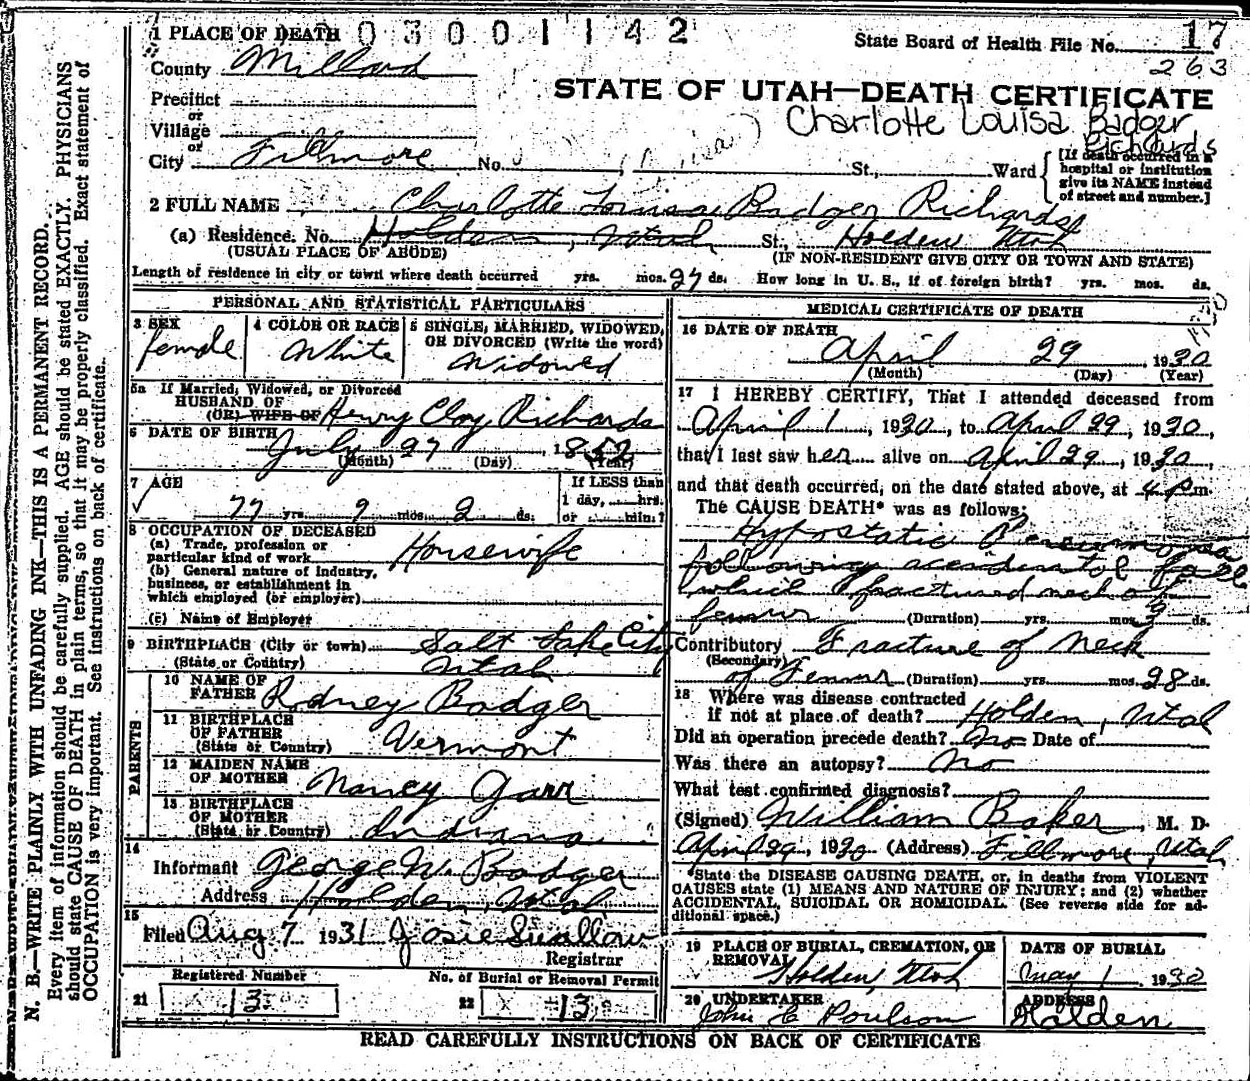 1 PLACE OF DEATH 03001142
State Board of Health File No. 17
263
County Millard
STATE OF UTAH—DEATH CERTIFICATE
Precinct
or
Village
or
City Fillmore No. St., Ward
Charlotte Louisa Badger
Richards
[If death occurred in a
hospital or institution
give its NAME instead
of street and number.]
2 FULL NAME Charlotte Louisa Badger Richards
(a) Residence. No. Holden, Utah St., Holden Utah
(USUAL PLACE OF ABODE) (IF NON-RESIDENT GIVE CITY OR TOWN AND STATE)
Length of residence in city or town where death occurred yrs. mos. 27 ds. How long in U. S., if of foreign birth? yrs. mos. ds.
PERSONAL AND STATISTICAL PARTICULARS
3 SEX
female
4 COLOR OR RACE
White
5 SINGLE, MARRIED, WIDOWED,
OR DIVORCED (Write the word)
Widowed
5a If Married, Widowed, or Divorced
HUSBAND OF
(OR) WIFE OF Henry Clay Richards
6 DATE OF BIRTH July 27 1852
(Month) (Day) (Year)
7 AGE
77 yrs. 9 mos. 2 ds.
If LESS than
1 day, hrs.
or min.?
8 OCCUPATION OF DECEASED
(a) Trade, profession or
particular kind of work Housewife
(b) General nature of industry,
business, or establishment in
which employed (or employer)
(c) Name of Employer
9 BIRTHPLACE (City or town) Salt Lake City
(State or Country) Utah
PARENTS
10 NAME OF
FATHER Rodney Badger
11 BIRTHPLACE
OF FATHER
(State or Country) Vermont
12 MAIDEN NAME
OF MOTHER Nancy Garr
13 BIRTHPLACE
OF MOTHER
(State or Country) Indiana
14
Informant George W. Badger
Address Holden, Utah
15
Filed Aug 7 1931 Josie Swallow
Registrar
Registered Number No. of Burial or Removal Permit
21 13 22 13
MEDICAL CERTIFICATE OF DEATH
16 DATE OF DEATH
April 29 1930
(Month) (Day) (Year)
17 I HEREBY CERTIFY, That I attended deceased from
April 1, 1930, to April 29, 1930,
that I last saw her alive on April 29, 1930
and that death occurred, on the date stated above, at 4 pm.
The CAUSE DEATH* was as follows:
Hypostatic Pneumonia
following accidental fall
which fractured neck of
femur (Duration) yrs. mos. 3 ds.
Contributory Fracture of Neck
(Secondary) of Femur (Duration) yrs. mos. 28 ds.
18 Where was disease contracted
if not at place of death? Holden, Utah
Did an operation precede death? No Date of
Was there an autopsy? No
What test confirmed diagnosis?
(Signed) William Baker, M. D.
April 29, 1930 (Address) Fillmore, Utah
*State the DISEASE CAUSING DEATH, or, in deaths from VIOLENT
CAUSES state (1) MEANS AND NATURE OF INJURY; and (2) whether
ACCIDENTAL, SUICIDAL OR HOMICIDAL. (See reverse side for ad-
ditional space.)
19 PLACE OF BURIAL, CREMATION, OR
REMOVAL
Holden, Utah
DATE OF BURIAL
May 1 1930
20 UNDERTAKER
John C Poulson
ADDRESS
Holden
READ CAREFULLY INSTRUCTIONS ON BACK OF CERTIFICATE
N. B.—WRITE PLAINLY WITH UNFADING INK—THIS IS A PERMANENT RECORD.
Every item of information should be carefully supplied. AGE should be stated EXACTLY. PHYSICIANS
should state CAUSE OF DEATH in plain terms, so that it may be properly classified. Exact statement of
OCCUPATION is very important. See instructions on back of certificate.